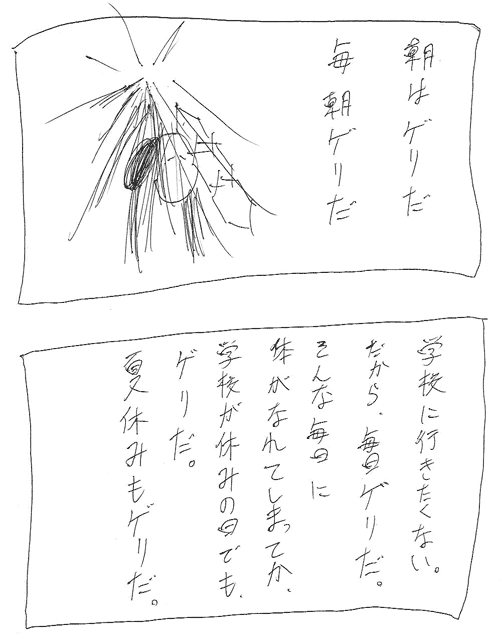 朝はゲリだ
毎朝ゲリだ
学校に行きたくない。
だから、毎日ゲリだ。
そんな毎日に
体がなれてしまってか、
学校が休みの日でも、
ゲリだ。
夏休みもゲリだ。